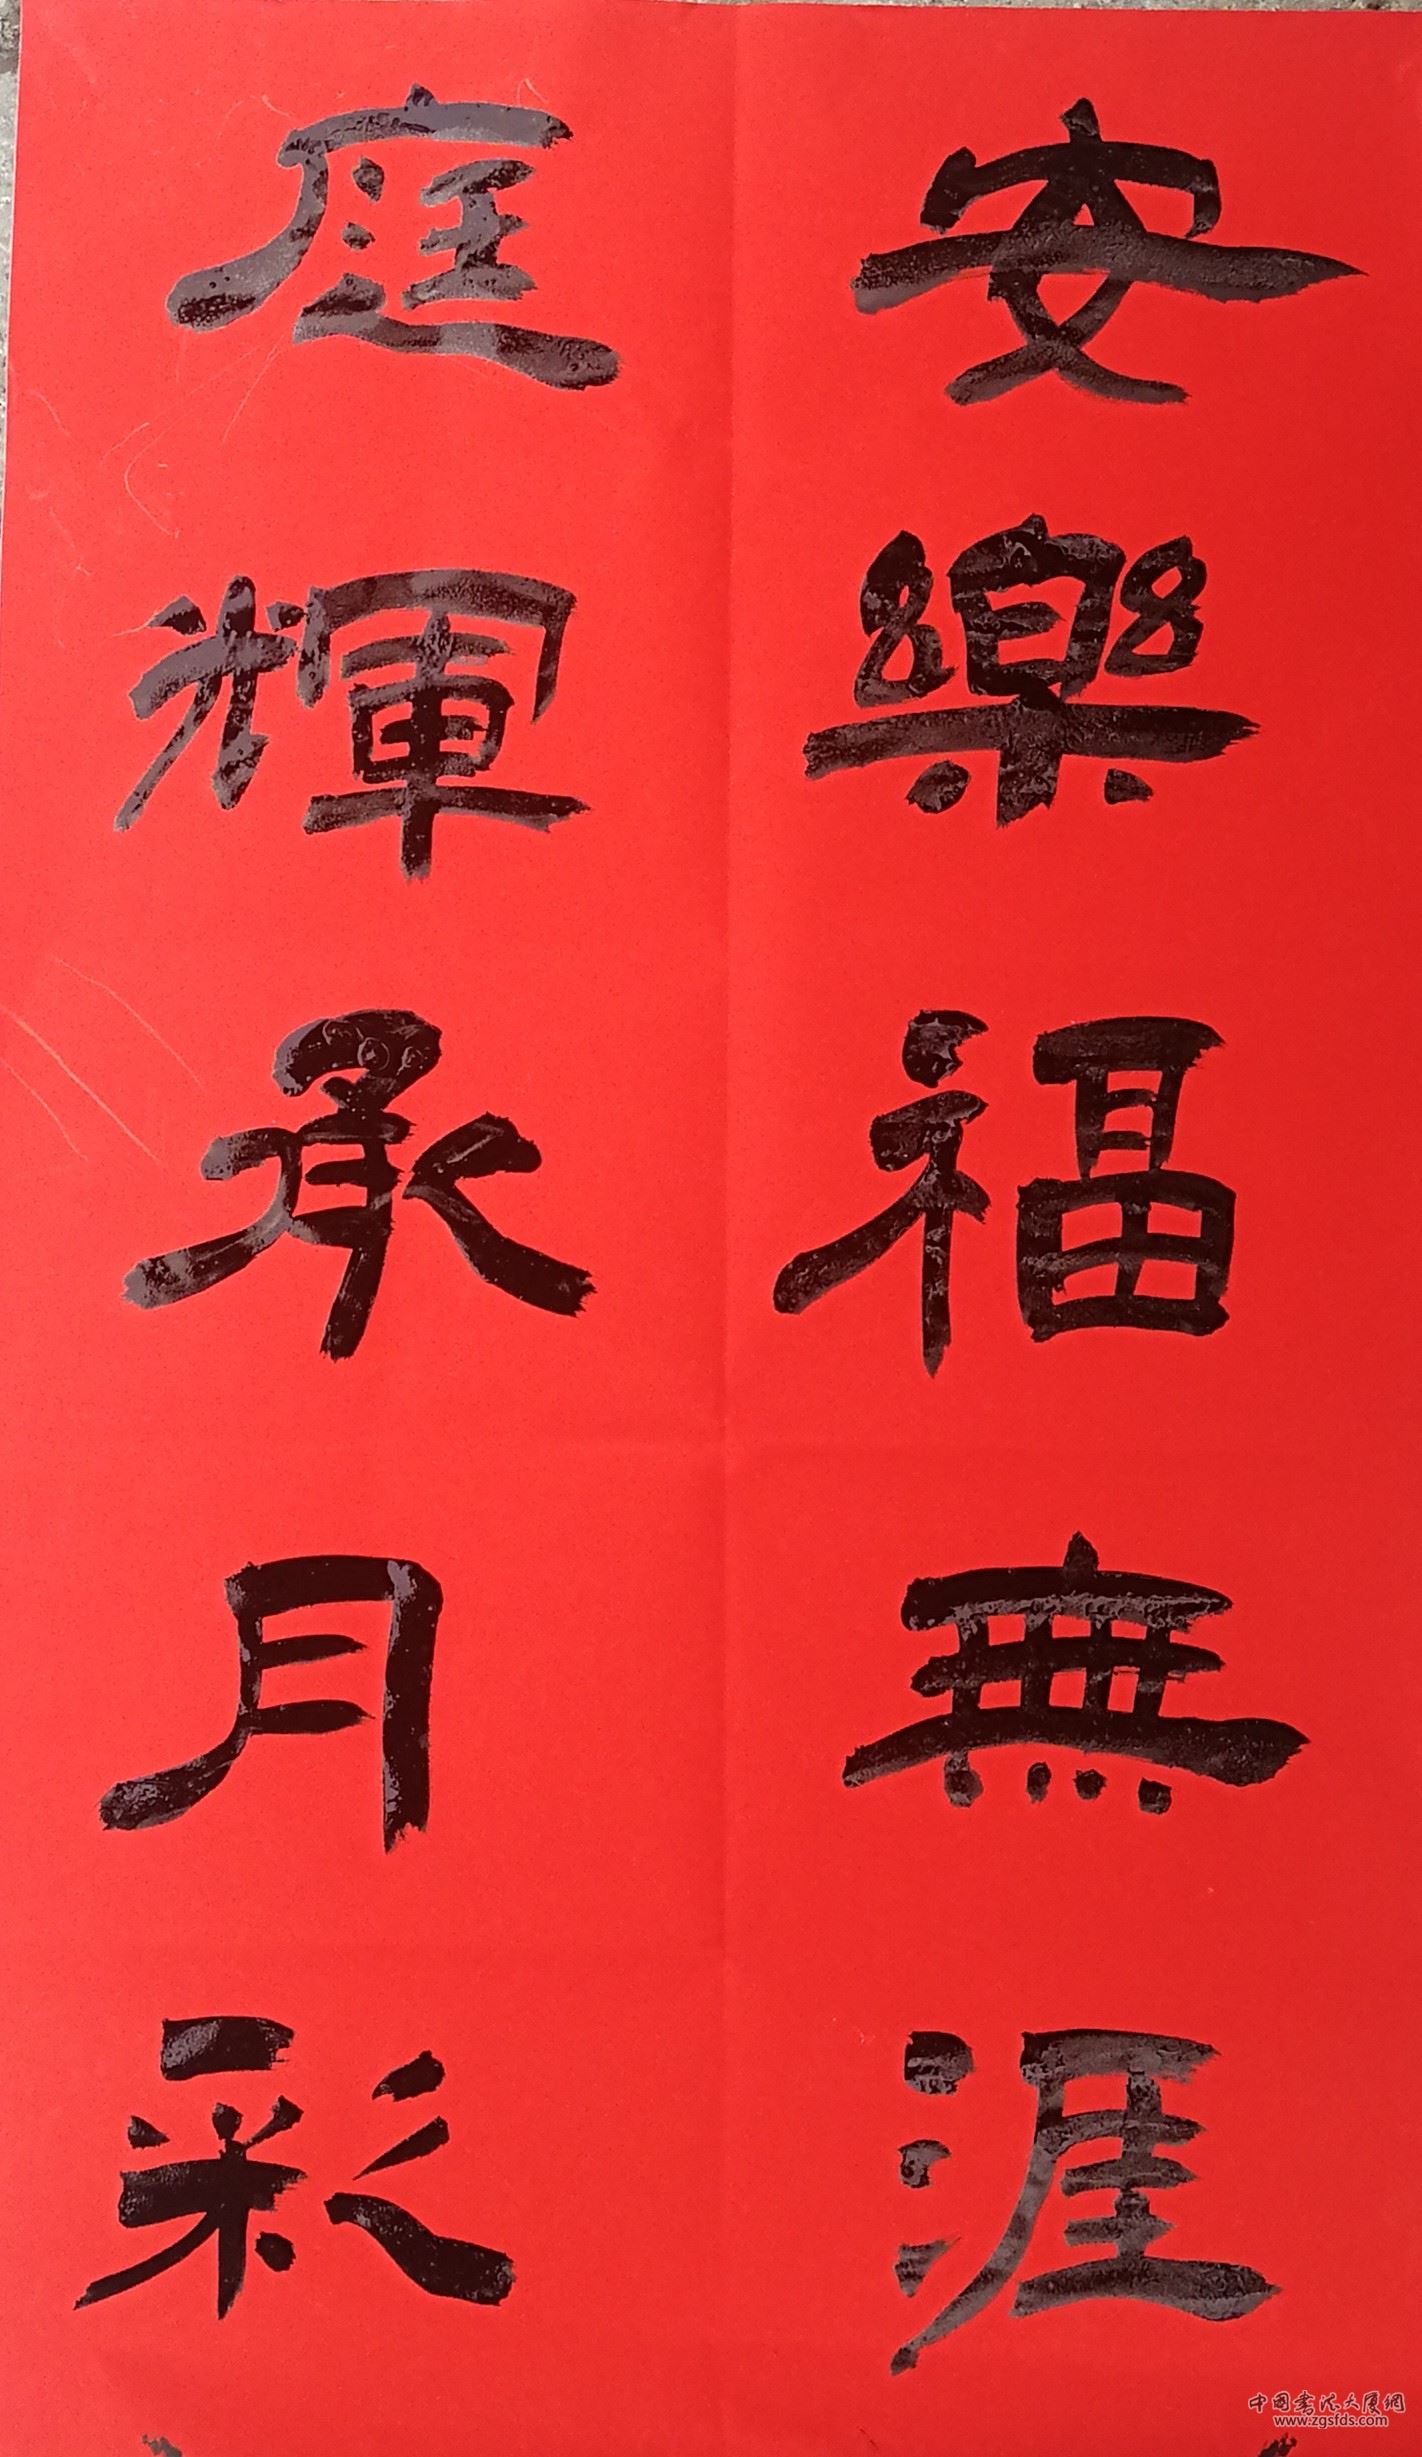 安樂福無涯
庭輝承月彩
中国书法大厦網
www.zgsfds.com